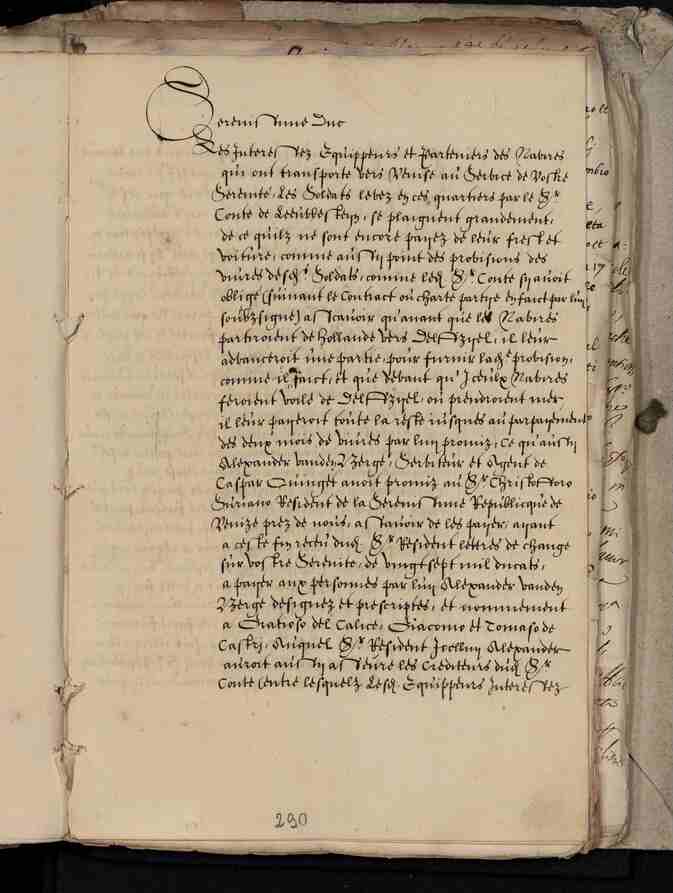 Serenissime Duc
Les Interessez Equippeurs et Parteniers des Navires
qui ont transporte vers Venise au Service de Vostre
Serenite, Les Soldats levez en ces quartiers par le Sr
Conte de Leeuvesteyn, se plaignent grandement,
de ce quilz ne sont encore payez de leur fresht et
voiture, comme aussy point des provisions des
vivres desdts Soldats, comme ledt Sr Conte sy avoit
oblige (suivant le Contract ou charte partye en faict par luy
soubzsigne) assçavoir qu'avant que les Navires
partiroient de Hollande vers Delffzyel, il leur
advanceroit une partie, pour furnir ladte provision,
comme il faict, et que devant qu'Iceulx Navires
feroient voile de Delffzyel, ou prendroient mer
il leur payeroit toute la reste jusques au parpayement
des deux mois de vivres par luy promiz, Ce qu'aussy
Alexander vanden Berge, Serviteur et Agent de
Caspar Quinget avoit promiz au Sr Christofforo
Suriano Resident de la Serenissime Republicque de
Venize prez de nous, assçavoir de les payer, ayant
a ceste fin receu dudt Sr Resident lettres de change
sur vostre Serenite, de vingtsept mil ducats,
a payer aux personnes par luy Alexander vanden
Berge designez et prescriptes, et nommement
a Gratioso del Calice, Giacomo et Tomaso de
Castri, Auquel Sr Resident Jcelluy Alexander
auroit aussy asseure les Crediteurs dudt Sr
Conte (entre lesquelz Lesdt Equippeurs Interessez
290